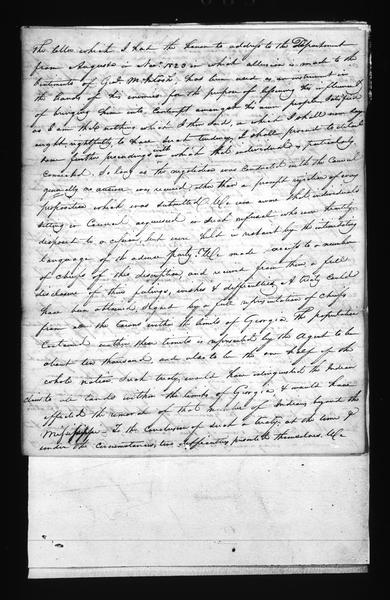 The letter which I had the honor to address to the Department
from Augusta in Nov. 1823 in which allusion is made to the
sentiments of Genl McIntosh, has been used as an instrument in
the hands of his enemies for the purpose of lessening his influence &
of bringing him into contempt amongst his own people. Satisfied
as I am that nothing which I then said, or which I shall now say
ought rightfully to have such tendency, I shall proceed to detail
some further proceedings with which that individual is particularly
connected. So long as the negotiation was conducted with the Council
generally no answer was received, other than a prompt rejection of every
proposition which was submitted. We were aware that individuals
sitting in Council acquiesced in such refusal who were
disposed to a cession, but were held in restraint by the intimidating
language of the adverse party. We made access to a number
of Chiefs of this description and received from them a full
disclosure of their feelings, wishes & difficulties. A treaty could
have been obtained, signed by a full representation of Chiefs
from all the towns within the limits of Georgia. The population
contained within these limits is represented by the Agent to be
about ten thousand and also to be the one half of the
whole nation. Such treaty, would have extinguished the Indian
claims to all lands within the limits of Georgia, & would have
effected the removal of that number of Indians beyond the
Mississippi. To the conclusion of such a treaty, at the time &
under the circumstances, two difficulties presented themselves. We